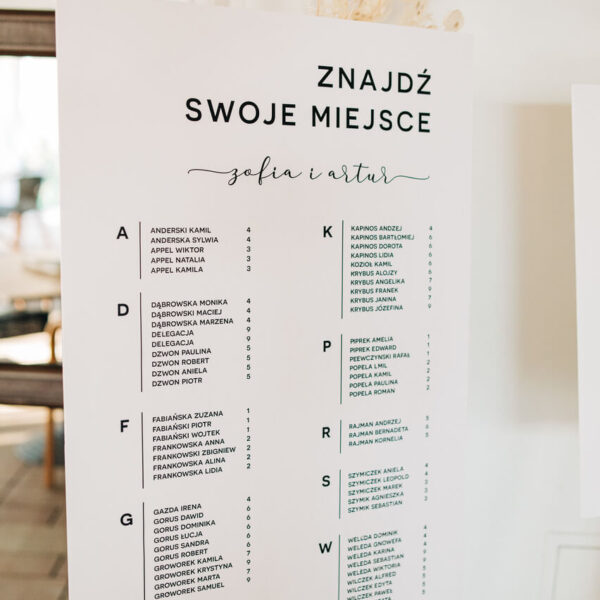 ZNAJDŹ
SWOJE MIEJSCE
zofia i artur
A
ANDERSKI KAMIL 4
ANDERSKA SYLWIA 4
APPEL WIKTOR 3
APPEL NATALIA 3
APPEL KAMILA 3
D
DĄBROWSKA MONIKA 4
DĄBROWSKI MACIEJ 4
DĄBROWSKA MARZENA 4
DELEGACJA 9
DELEGACJA 9
DZWON PAULINA 5
DZWON ROBERT 5
DZWON ANIELA 5
DZWON PIOTR 5
F
FABIAŃSKA ZUZANA 1
FABIAŃSKI PIOTR 1
FABIAŃSKI WOJTEK 1
FRANKOWSKA ANNA 2
FRANKOWSKI ZBIGNIEW 2
FRANKOWSKA ALINA 2
FRANKOWSKA LIDIA 2
G
GAZDA IRENA 4
GORUS DAWID 6
GORUS DOMINIKA 6
GORUS ŁUCJA 6
GORUS SANDRA 6
GORUS ROBERT 6
GROWOREK KAMILA 7
GROWOREK KRYSTYNA 9
GROWOREK MARTA 7
GROWOREK SAMUEL 9
K
KAPINOS ANDZEJ 4
KAPINOS BARTŁOMIEJ 6
KAPINOS DOROTA 6
KAPINOS LIDIA 6
KOZIOŁ KAMIL 6
KRYBUS ALOJZY 6
KRYBUS ANGELIKA 7
KRYBUS FRANEK 9
KRYBUS JANINA 7
KRYBUS JÓZEFINA 9
P
PIPREK AMELIA 1
PIPREK EDWARD 1
PEEWCZYNSKI RAFAŁ 1
POPELA LMIL 2
POPELA KAMIL 2
POPELA PAULINA 2
POPELA ROMAN 2
R
RAJMAN ANDRZEJ
RAJMAN BERNADETA
RAJMAN KORNELIA 5
S
SZYMICZEK ANIELA 4
SZYMICZEK LEOPOLD 4
SZYMICZEK MAREK 3
SZYMIK AGNIESZKA
SZYMIK SEBASTIAN
W
DOMINIK 4
WELEDA 4
WELEDA KARINA
WELEDA SEBASTIAN 9
WELEDA WIKTORIA
WILCZEK ALFRED
WILCZEK EDYTA
WILCZEK PAWEŁ